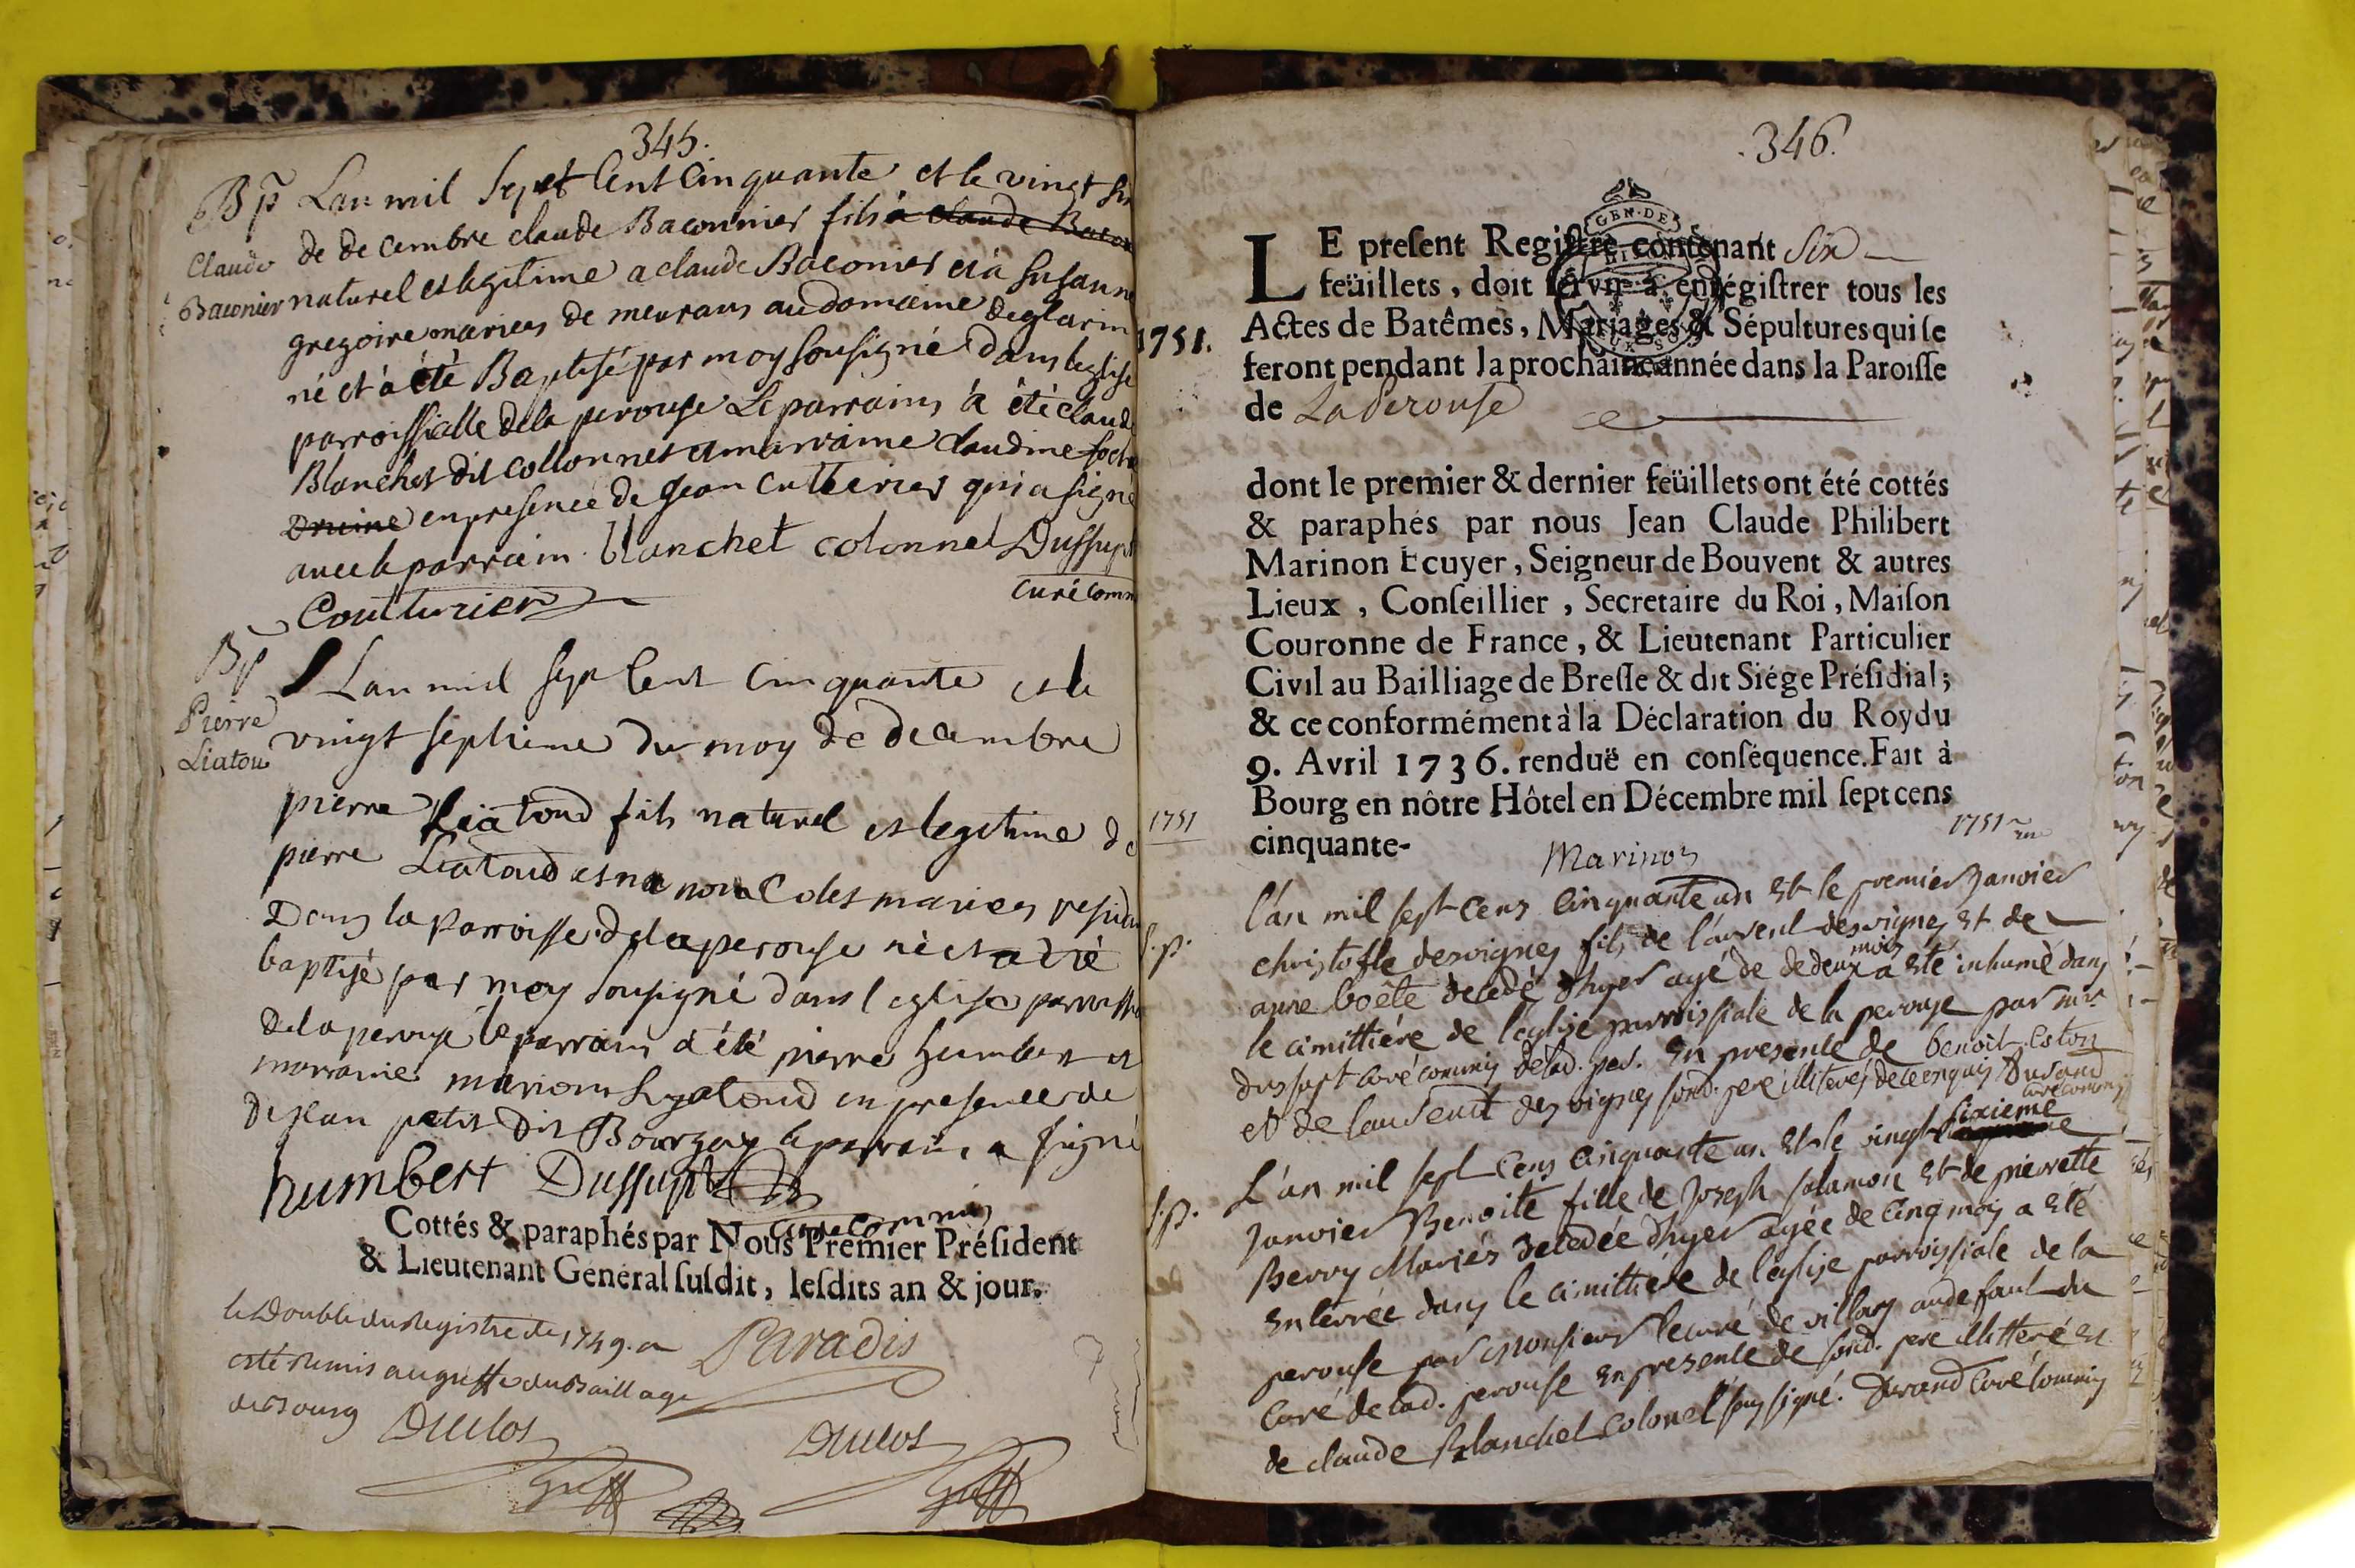 345.
Bp Lan mil sept Cent Cinquante et le vingt
Claude de decembre claude Baconnier fils a claude
Baconier naturel et legitime a claude Baconier et a Susanne
gregoire maries de meurans au domaine
né et a été Baptisé par moy sousigné dans leglise
parroissialle de la perouse Le parrain a été claude
Blanchet dit collonnet et marraine claudine
en presence de Jean Cutturier qui a signé
avec le parrain. blanchet colonnel Dussupt
Coutturier curé comm
Bp
Lan mil sept Cent Cinquante et le
Pierre vingt septieme du moy de decembre
Liatou
pierre Liatoud fils naturel et legitime de
pierre Liatoud et maries
Dans la parroisse de la perouse né et a été
baptisé par moy sousigné dans l eglise
de la perouse le parrain a été pierre humbert et
marraine marion Lyatoud en presence de
de Jean petit dit le parrain a signé
humbert Dussupt
curé commis
Cottés & paraphés par Nous Premier Préſident
& Lieutenant Général ſuſdit, leſdits an & jour.
le Double du Registre de 1749. a Paradis
esté remis au greffe du Baillage
de Bourg Duclos Duclos
Greff Greff
.346.
LE preſent Regiſtre contenant Six
feüillets, doit ſervir à enrégiſtrer tous les
1751. Actes de Batêmes, Mariages & Sépultures qui ſe
feront pendant la prochaine année dans la Paroiſſe
de La Perouse
dont le premier & dernier feüillets ont été cottés
& paraphés par nous Jean Claude Philibert
Marinon Ecuyer, Seigneur de Bouvent & autres
Lieux, Conſeillier, Secretaire du Roi, Maiſon
Couronne de France, & Lieutenant Particulier
Civil au Bailliage de Breſſe & dit Siége Préſidial;
& ce conformément à la Déclaration du Roy du
9. Avril 1736. renduë en conſéquence. Fait à
Bourg en nôtre Hôtel en Décembre mil ſept cens
1751 cinquante- 1751
Marinon
l'an mil sept cens Cinquante un Et le premier Janvier
S.p. christofle desvignes fils de laurent desvignes Et de
anne boête decedé d'hyer agé de de deux mois a Eté inhumé dans
le cimittiére de l'eglise parroissiale de la perouse par mr
dussupt curé commis de lad. per. En presence de benoit Eston
et de laurent desvignes sond. pere illiterés de ce enquis Durand
curé commis
L'an mil sept Cens Cinquante un Et le vingt sixieme
S.p. Janvier Benoite fille de Joseph salamon Et de pierrette
Berry Mariés decedée d'hyer agée de Cinq mois a Eté
Enterrée dans le cimittiére de leglise parroissiale de la
perouse par Monsieur le curé de villars au defaut du
Curé de lad. perouse En presence de sond. pere illitteré Et
de claude Blanchet Colonel sous signé. Durand Curé Commis